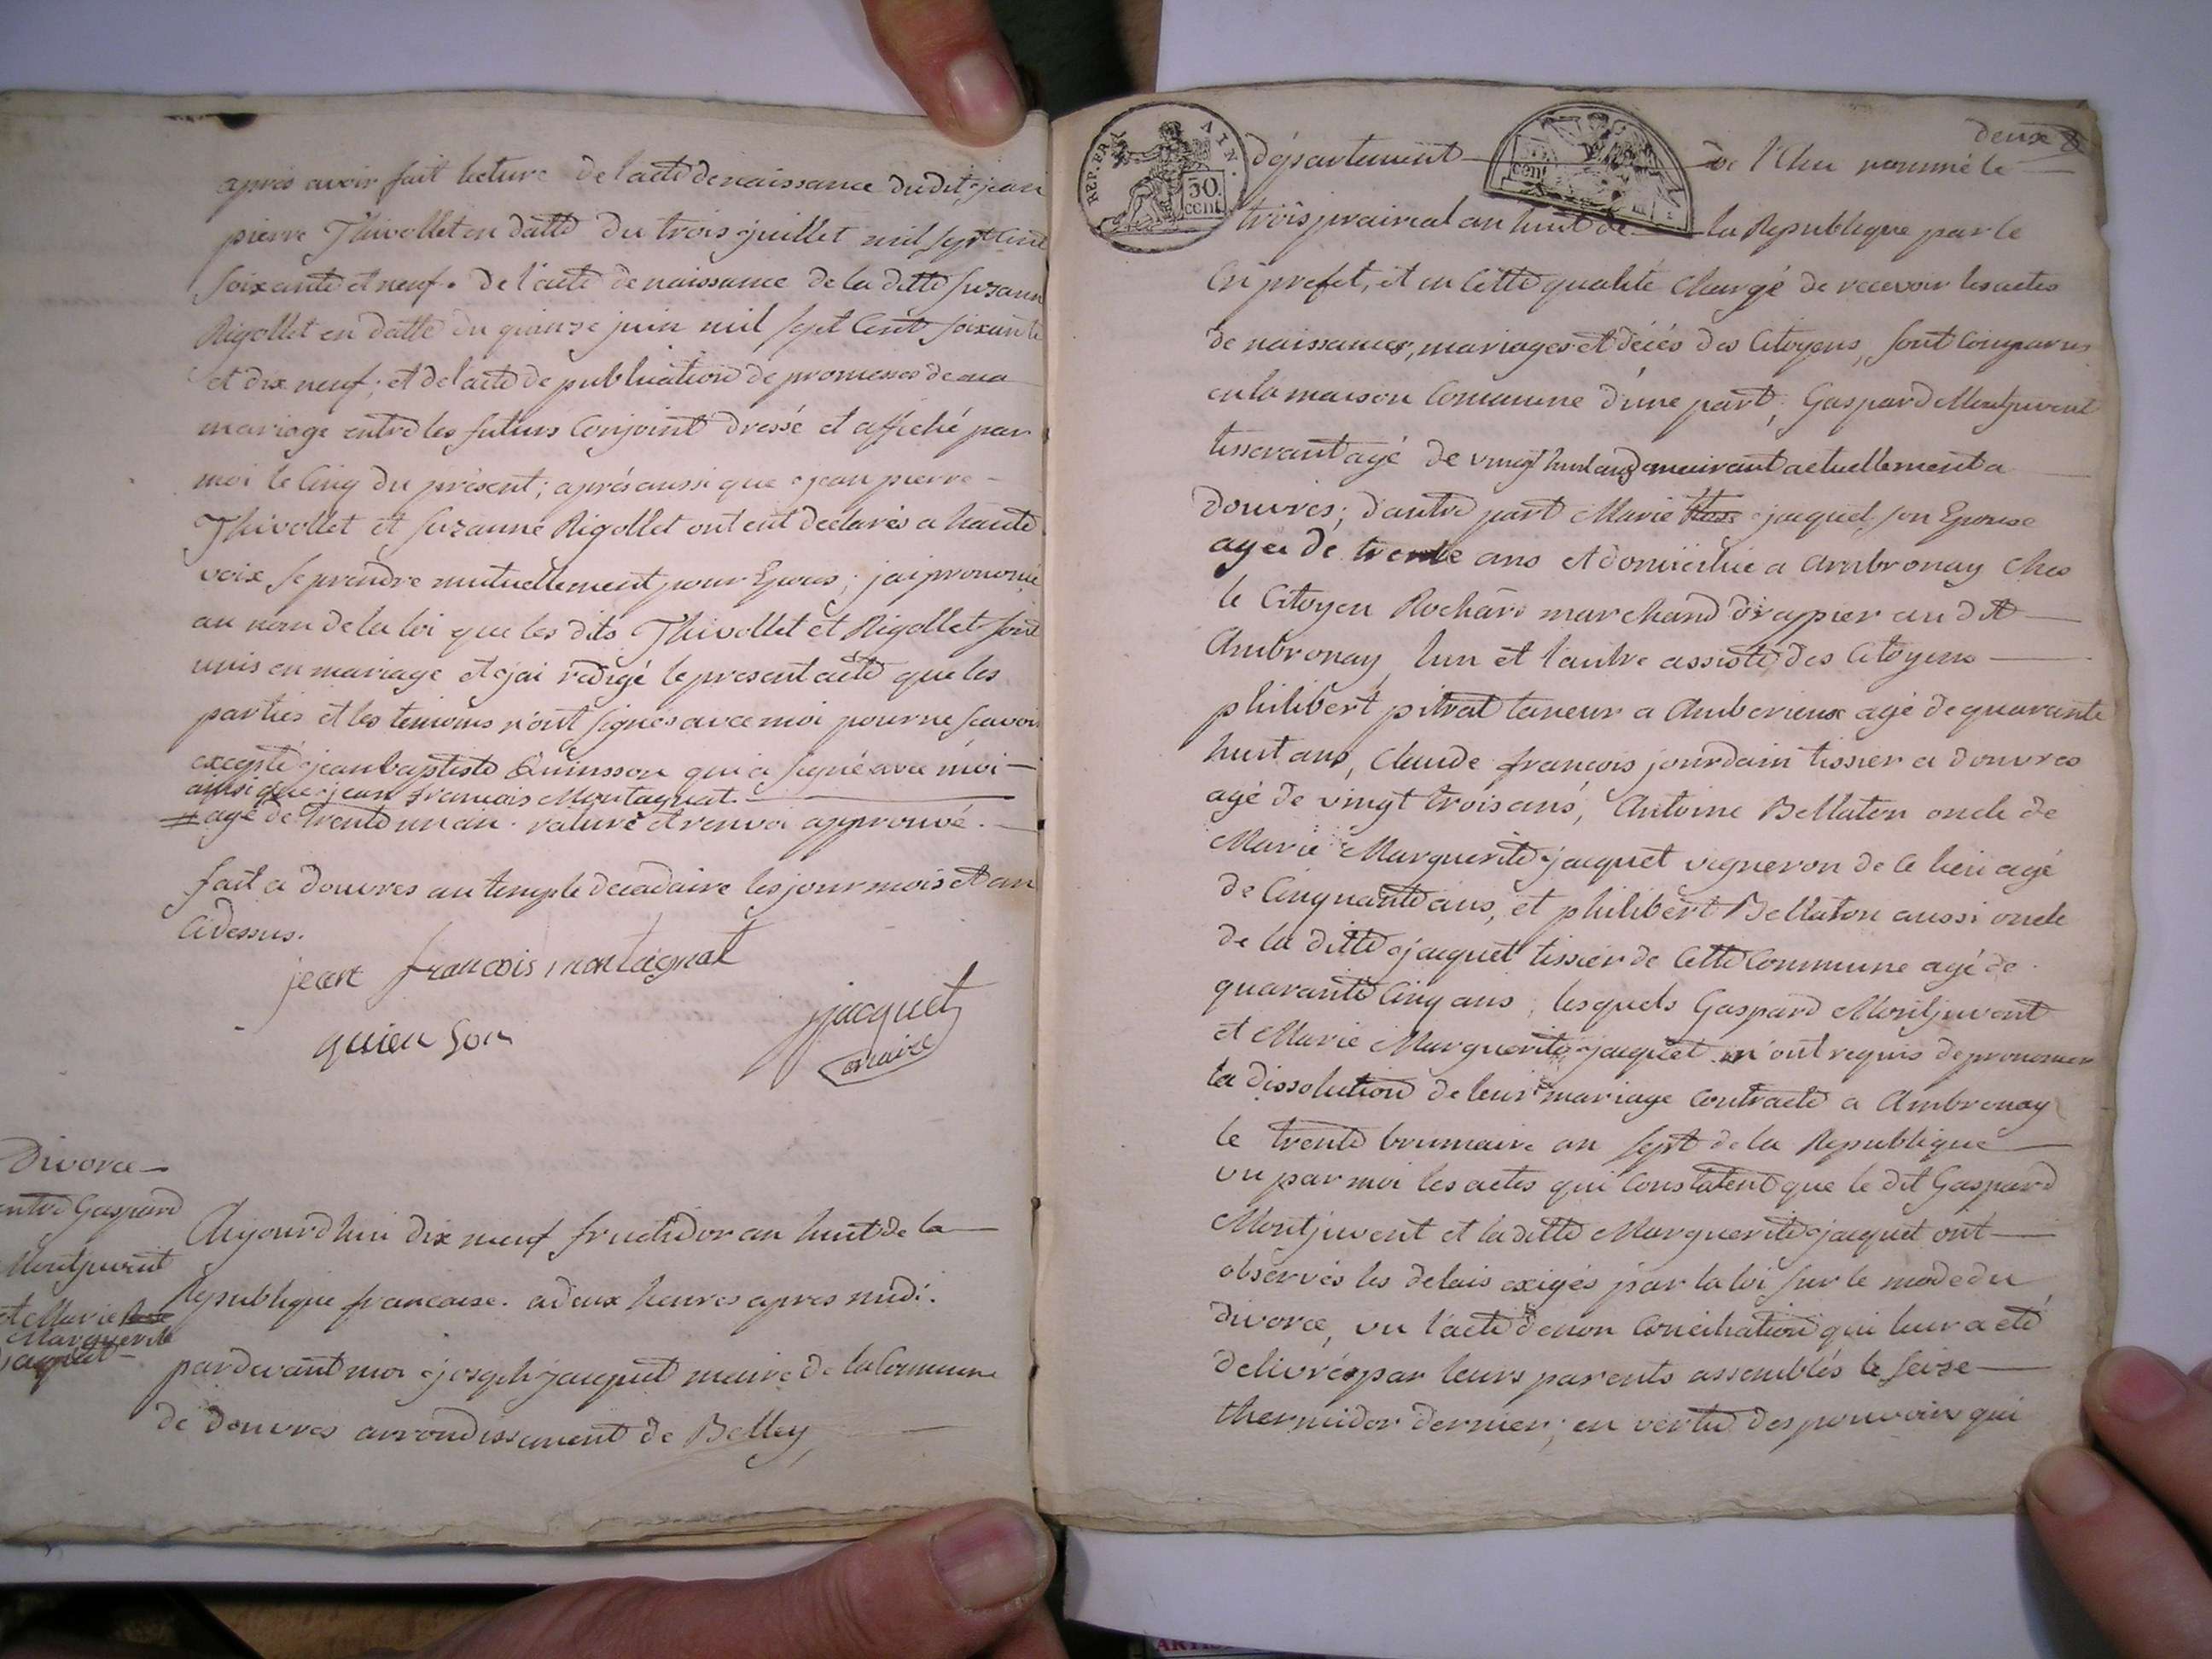 après avoir fait lecture de l'acte de naissance dudit jean
pierre Thivollet en datte du trois juillet mil sept cent
soixante et neuf. de l'acte de naissance de la ditte suzann
Rigollet en datte du quinze juin mil sept cent soixante
et dix neuf; et de l'acte de publication de promesses de
mariage entre les futurs conjoint dressé et affiché par
moi le cinq du présent; aprés aussi que jean pierre
Thivollet et suzanne Rigollet ont eut declarés a haute
voix se prendre mutuellement pour Epoux; jai prononcé
au nom de la loi que les dits Thivollet et Rigollet sont
unis en mariage et jai redigé le present acte que les
parties et les temoins n'ont signés avec moi pour ne scavoir
excepté jean baptiste Quinsson qui a signé avec moi
ainsi que jean francois Montagnat.
agé de trente un an. raturé et renvoi approuvé.
fait a douvres au temple decadaire les jour mois et an
cidessus.
jean francois montagnat
quien son
jjacquet
maire
Divorce
entre Gaspard
Montjuvent
et Marie
Marguerite
jacquet
Aujourdhui dix neuf fructidor an huit de la
Republique francaise. a deux heures apres midi.
pardevant moi joseph jacquet maire de la Commune
de douvres arrondissement de Belley
deux
REP. FRA. AIN.
30 cent
cent
département de l'Ain nommé le
trois prairial an huit de la Republique par le
préfet, et en cette qualité chargé de recevoir les actes
de naissances, mariages et décés des Citoyens, sont comparus
en la maison commune d'une part, Gaspard Montjuvent
tisserant agé de vingt huit ans demeurant actuellement a
douvres; d'autre part Marie jacquet son Epouse
agée de trente ans et domiciliée a Ambronay chés
le Citoyen Rochard marchand drappier au dit
Ambronay, l'un et l'autre assisté des Citoyens
philibert pitrat taneur a Amberieux agé de quarante
huit ans, Claude francois jourdain tissier a douvres
agé de vingt trois ans, Antoine Bellaton oncle de
Marie Marguerite jacquet vigneron de ce lieu agé
de cinquante ans, et philibert Bellaton aussi oncle
de la ditte jacquet tissier de cette commune agé de
quarante cinq ans, lesquels Gaspard Montjuvent
et Marie Marguerite jacquet m'ont requis de prononcer
la dissolution de leur mariage contracté a Ambronay
le trente brumaire an sept de la Republique
vu par moi les actes qui constatent que le dit Gaspard
Montjuvent et laditte Marguerite jacquet ont
observés les delais exigés par la loi sur le mode du
divorce, vu l'acte de non conciliation qui leur a eté
delivré par leurs parents assemblés le seize
thermidor dernier; en vertu des pouvoirs qui